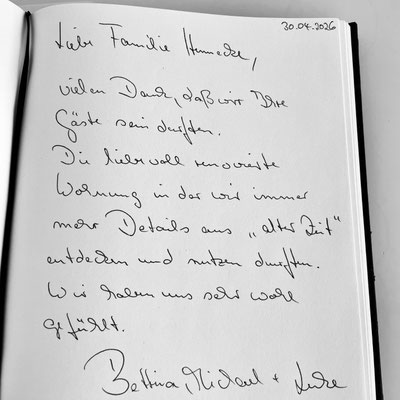 30.04.2026
Liebe Familie Hennecke,
vielen Dank, daß wir Ihre
Gäste sein durften.
Die liebevoll renovierte
Wohnung in der wir immer
mehr Details aus „alter Zeit"
entdecken und nutzen durften.
Wir haben uns sehr wohl
gefühlt.
Bettina, Michael +